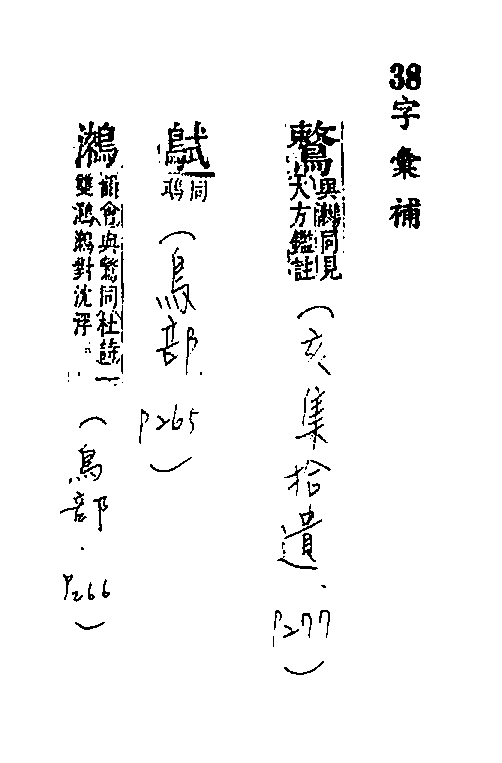 38字彙補
與鸂同見
大方鑑註
(亥集拾遺.
P277)
同
(鳥部.
P265)
韻會與鷘同杜詩
雙鸂鶒對沈浮
(鳥部.
P266)